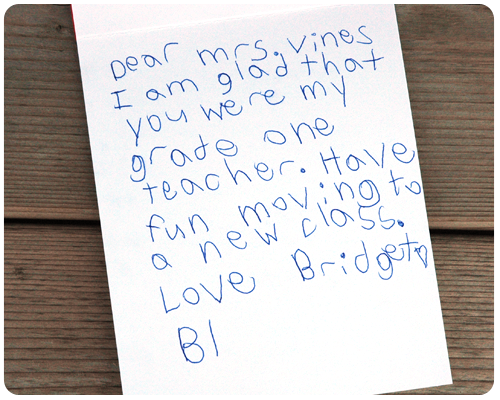 Dear mrs. Vines
I am glad that
you were my
grade one
teacher. Have
fun moving to
a new class.
Love Bridget♡
Bl